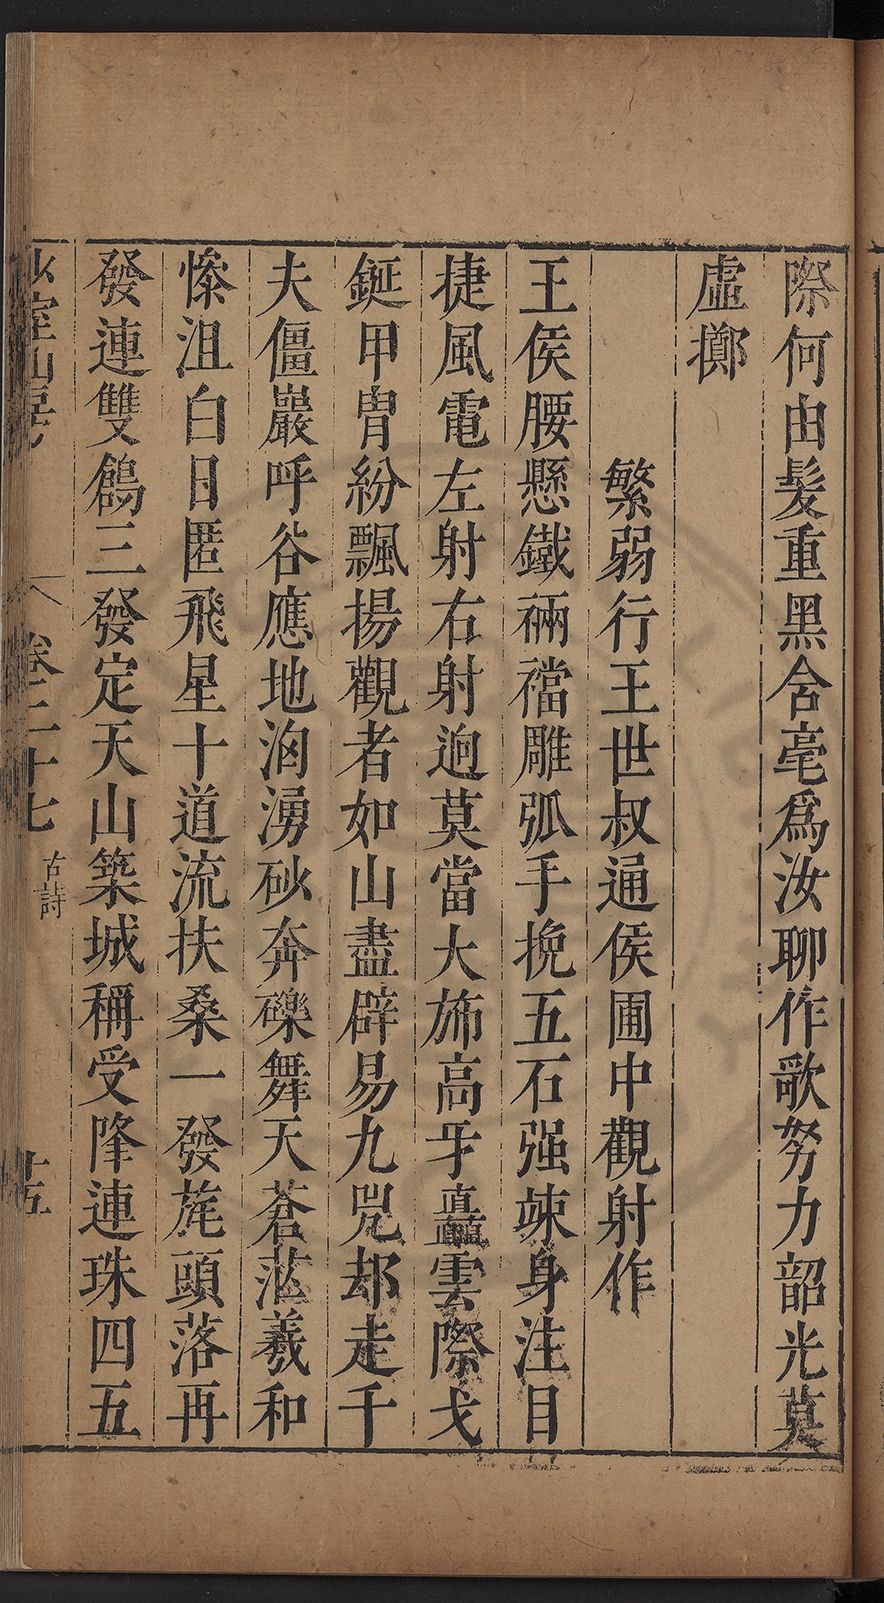 際何由髮重黑含毫爲汝聊作歌努力韶光莫
虛擲
繁弱行王世叔通侯圃中觀射作
王侯腰懸鐵裲襠雕弧手挽五石强竦身注目
捷風電左射右射逈莫當大斾高牙矗雲際戈
鋋甲胄紛飄揚觀者如山盡辟易九兕却走千
夫僵巖呼谷應地洶湧砂奔礫舞天蒼茫羲和
慘沮白日匿飛星十道流扶桑一發旄頭落再
發連雙鶬三發定天山築城稱受降連珠四五
少室山房 卷二十七 古詩 十五